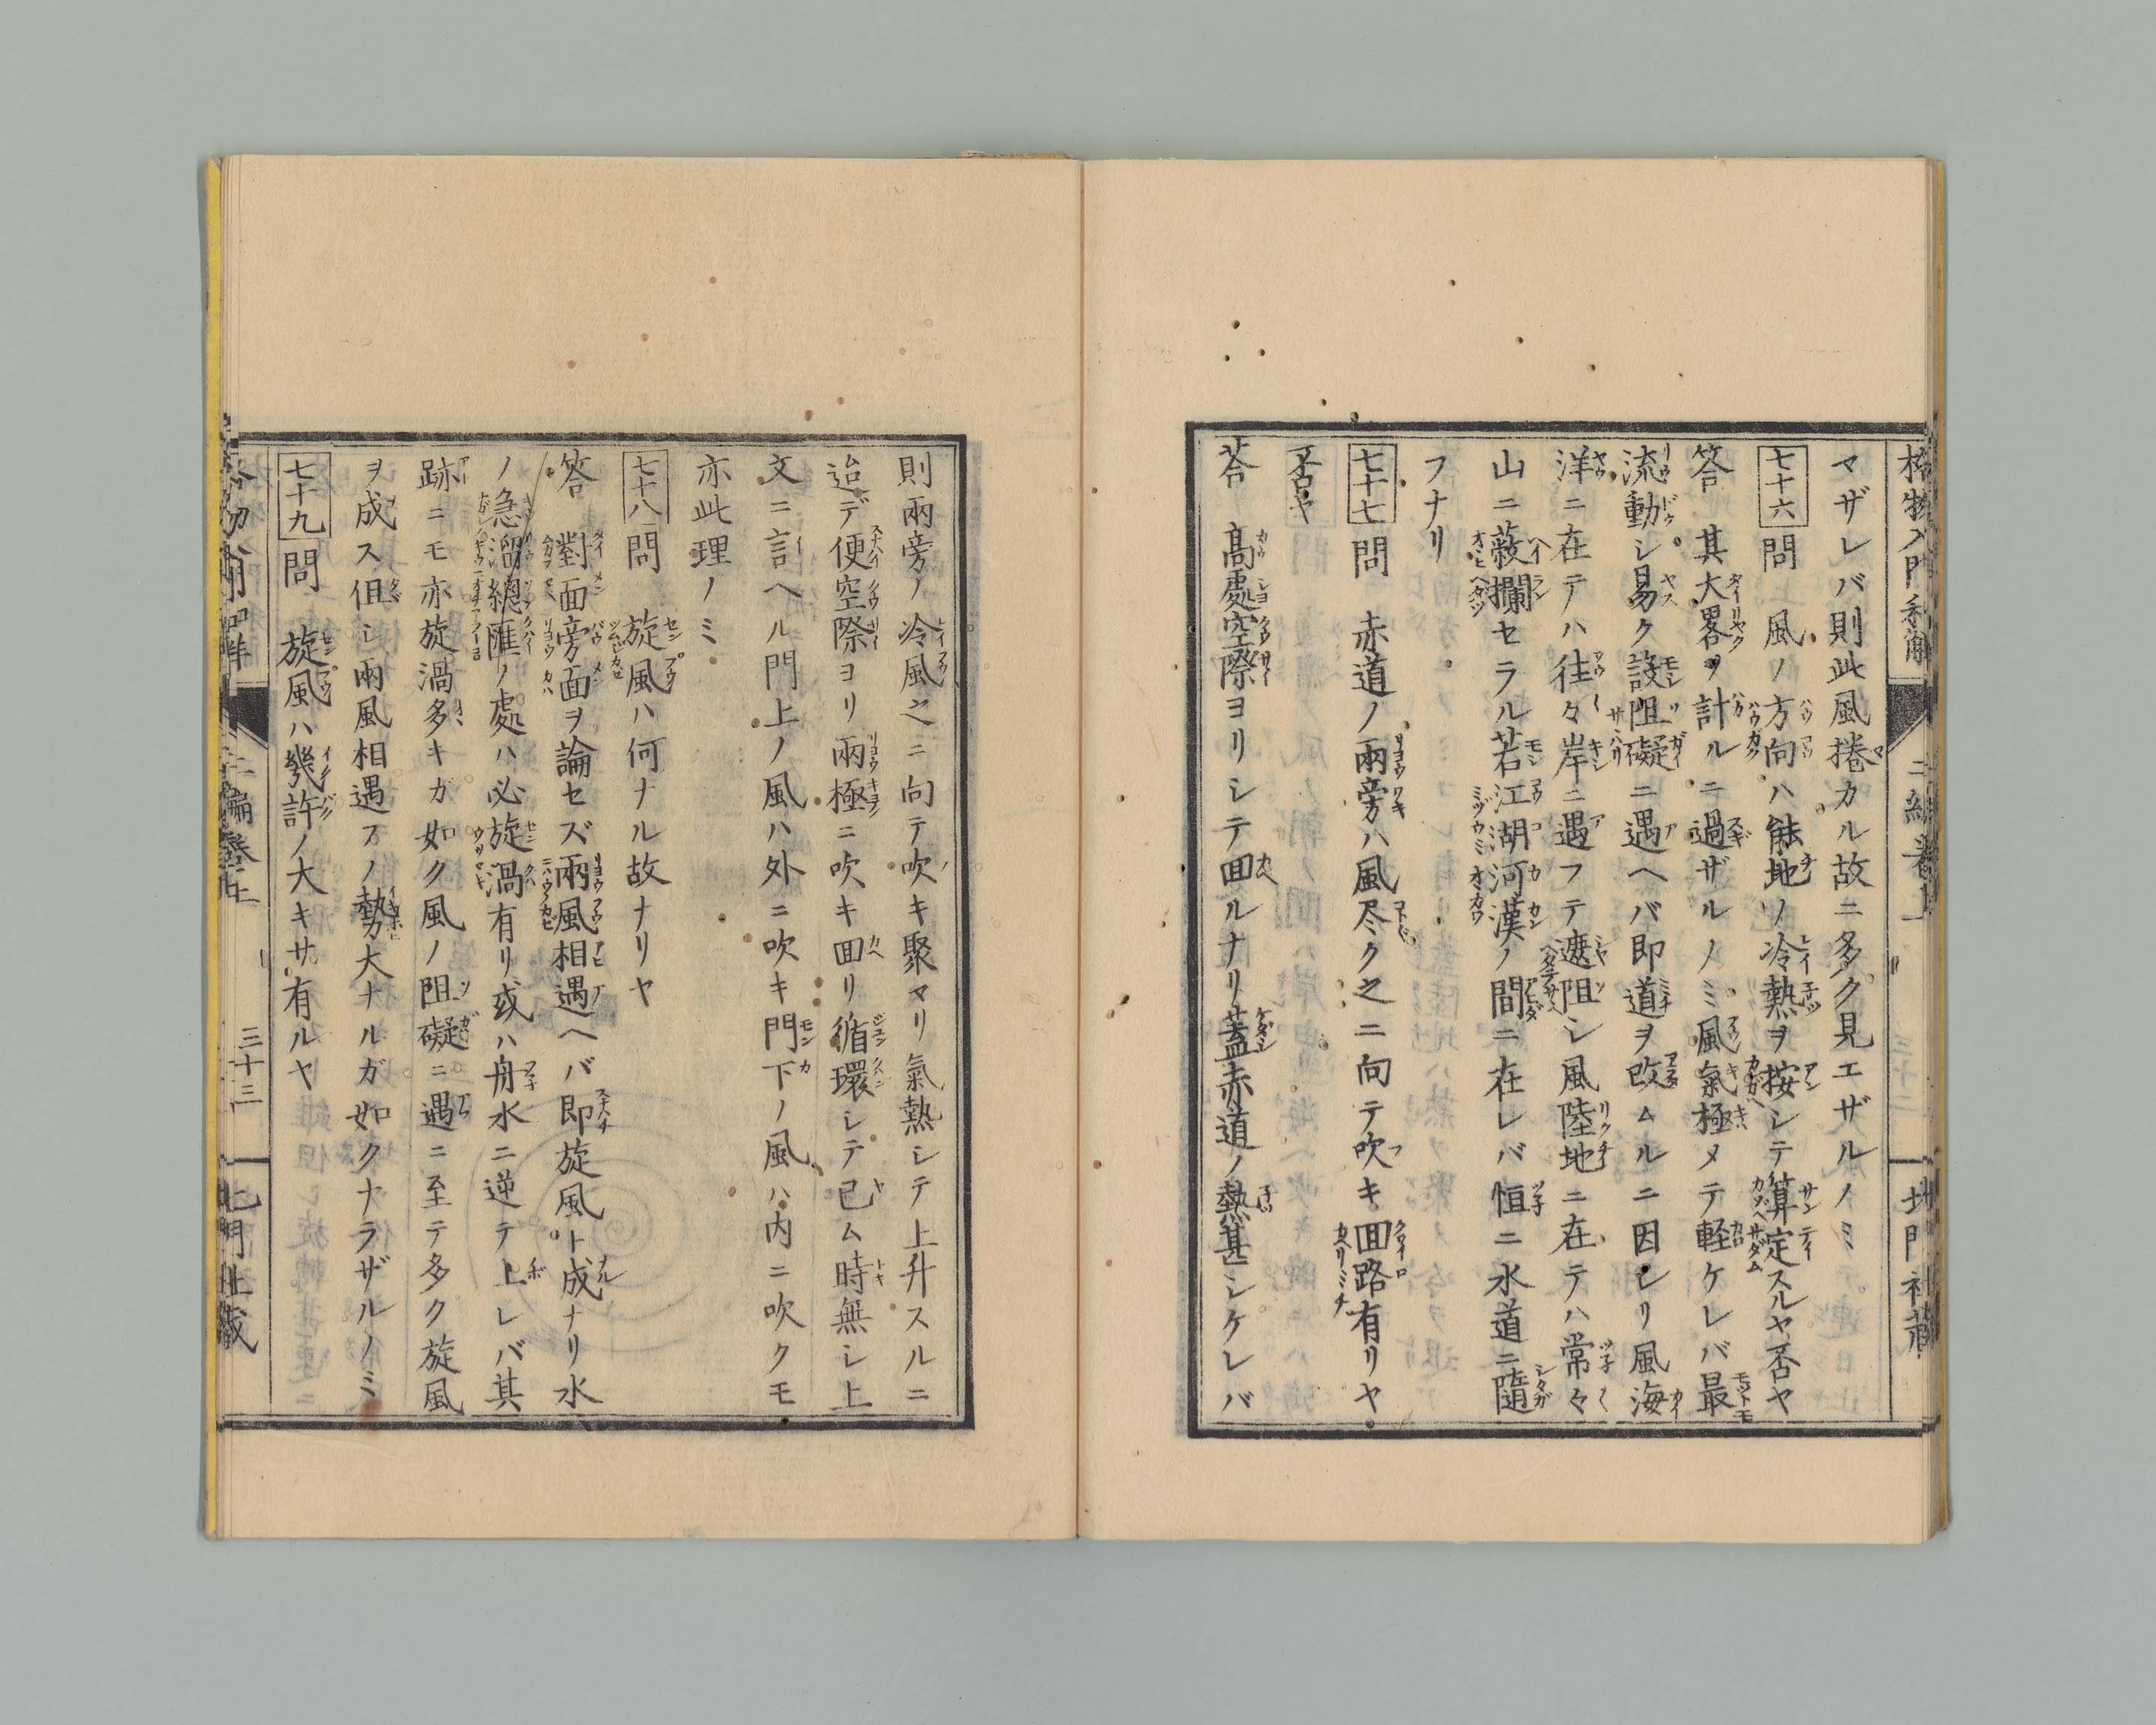 格物入門和解 二編巻上 北門社蔵
マザレバ則此風捲カル故ニ多ク見エザルノミ
七十六 問 風ノ方向ハ能地ノ冷熱ヲ按シテ算定スルヤ否ヤ
答 其大畧ヲ計ルニ過ザルノミ風氣極メテ軽ケレバ最
流動シ易ク設阻礙ニ遇ヘバ即道ヲ改ムルニ因レリ風海
洋ニ在テハ往々岸ニ遇フテ遮阻シ風陸地ニ在テハ常々
山ニ蔽攔セラル若江湖河漢ノ間ニ在レバ恒ニ水道ニ隨
フナリ
七十七 問 赤道ノ兩旁ハ風尽ク之ニ向テ吹キ囬路有リヤ
否ヤ
荅 高處空際ヨリシテ囬ルナリ蓋赤道ノ熱甚シケレバ
則兩旁ノ冷風之ニ向テ吹キ聚マリ氣熱シテ上升スルニ
迨デ便空際ヨリ兩極ニ吹キ囬リ循環シテ已ム時無シ上
文ニ言ヘル門上ノ風ハ外ニ吹キ門下ノ風ハ内ニ吹クモ
亦此理ノミ
七十八 問 旋風ハ何ナル故ナリヤ
答 對面旁面ヲ論セズ兩風相遇ヘバ即旋風ト成ナリ水
ノ急溜總匯ノ處ハ必旋渦有リ或ハ舟水ニ逆テ上レバ其
跡ニモ亦旋渦多キガ如ク風ノ阻礙ニ遇ニ至テ多ク旋風
ヲ成ス但シ兩風相遇フノ勢大ナルガ如クナラザルノミ
七十九 問 旋風ハ幾許ノ大キサ有ルヤ
三十三 北門社蔵